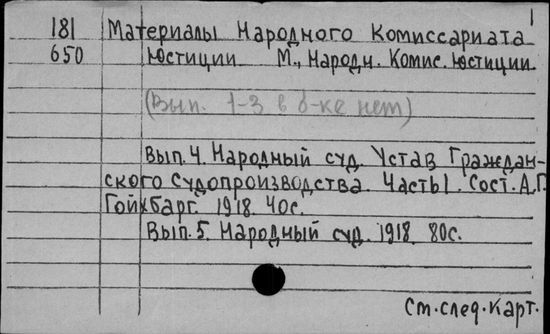 1
181 Материалы Народного Комиссариата
650 Юстиции М., Народн. Комис. Юстиции
(Вып. 1-3 в б-ке нет)
Вып. 4. Народный суд. Устав Граждан-
ского судопроизводства. Часть I. Сост. А.Г.
Гойхбарг. 1918. 40с.
Вып. 5. Народный суд. 1918. 80с.
См. след. карт.